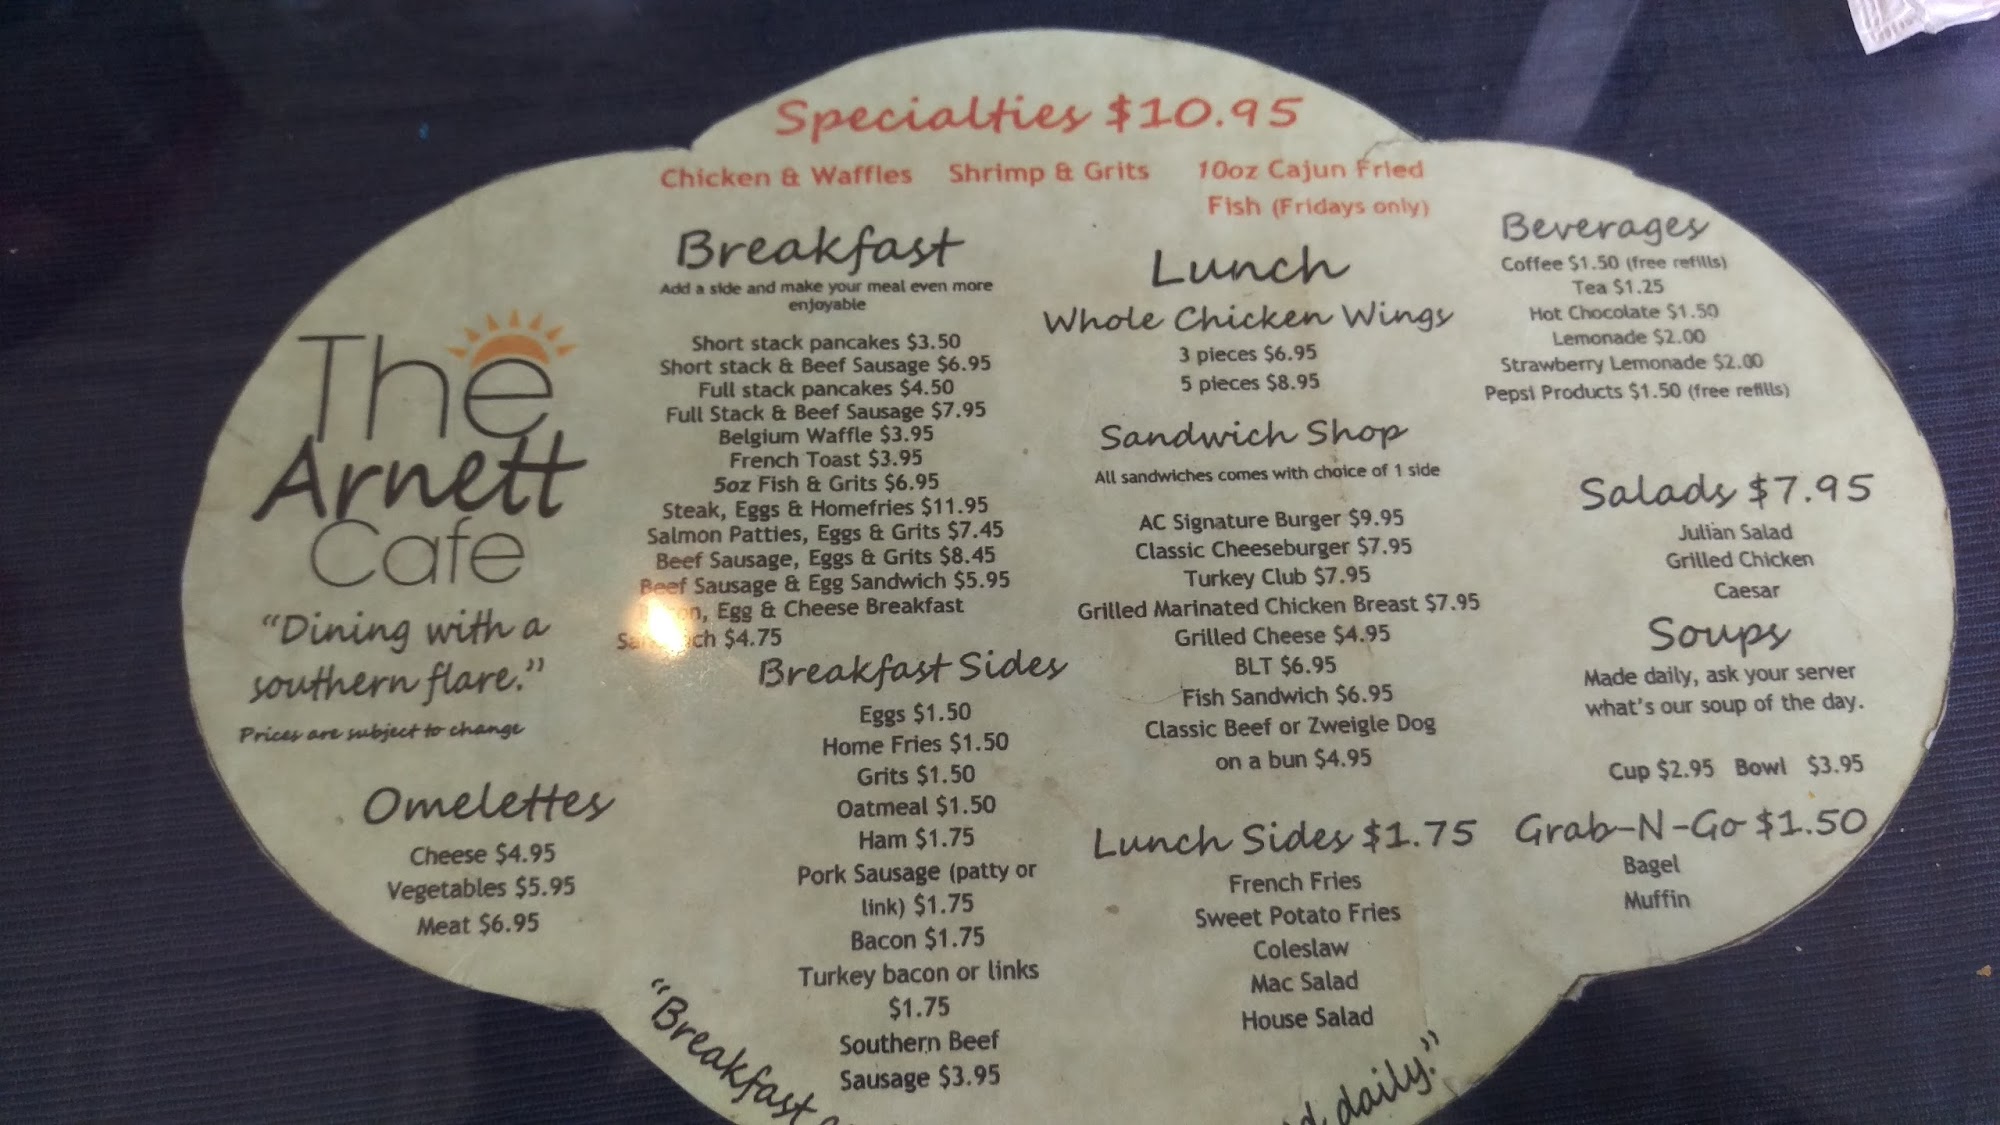 Specialties $10.95
Chicken & Waffles Shrimp & Grits 10oz Cajun Fried
Fish (Fridays only)
The
Arnett
Cafe
"Dining with a
southern flare."
Prices are subject to change
Omelettes
Cheese $4.95
Vegetables $5.95
Meat $6.95
Breakfast
Add a side and make your meal even more
enjoyable
Short stack pancakes $3.50
Short stack & Beef Sausage $6.95
Full stack pancakes $4.50
Full Stack & Beef Sausage $7.95
Belgium Waffle $3.95
French Toast $3.95
5oz Fish & Grits $6.95
Steak, Eggs & Homefries $11.95
Salmon Patties, Eggs & Grits $7.45
Beef Sausage, Eggs & Grits $8.45
Beef Sausage & Egg Sandwich $5.95
Egg & Cheese Breakfast
$4.75
Breakfast Sides
Eggs $1.50
Home Fries $1.50
Grits $1.50
Oatmeal $1.50
Ham $1.75
Pork Sausage (patty or
link) $1.75
Bacon $1.75
Turkey bacon or links
$1.75
Southern Beef
Sausage $3.95
Lunch
Whole Chicken Wings
3 pieces $6.95
5 pieces $8.95
Sandwich Shop
All sandwiches comes with choice of 1 side
AC Signature Burger $9.95
Classic Cheeseburger $7.95
Turkey Club $7.95
Grilled Marinated Chicken Breast $7.95
Grilled Cheese $4.95
BLT $6.95
Fish Sandwich $6.95
Classic Beef or Zweigle Dog
on a bun $4.95
Lunch Sides $1.75
French Fries
Sweet Potato Fries
Coleslaw
Mac Salad
House Salad
Beverages
Coffee $1.50 (free refills)
Tea $1.25
Hot Chocolate $1.50
Lemonade $2.00
Strawberry Lemonade $2.00
Pepsi Products $1.50 (free refills)
Salads $7.95
Julian Salad
Grilled Chicken
Caesar
Soups
Made daily, ask your server
what's our soup of the day.
Cup $2.95 Bowl $3.95
Grab-N-Go $1.50
Bagel
Muffin
"Breakfast
daily."